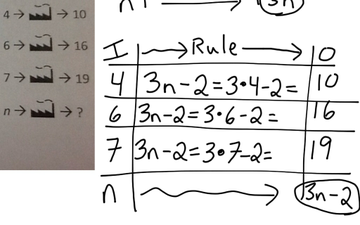 4 → → 10
6 → → 16
7 → → 19
n → → ?
3n
I → Rule → O
4 3n-2=3•4-2= 10
6 3n-2=3•6-2= 16
7 3n-2=3•7-2= 19
n → 3n-2